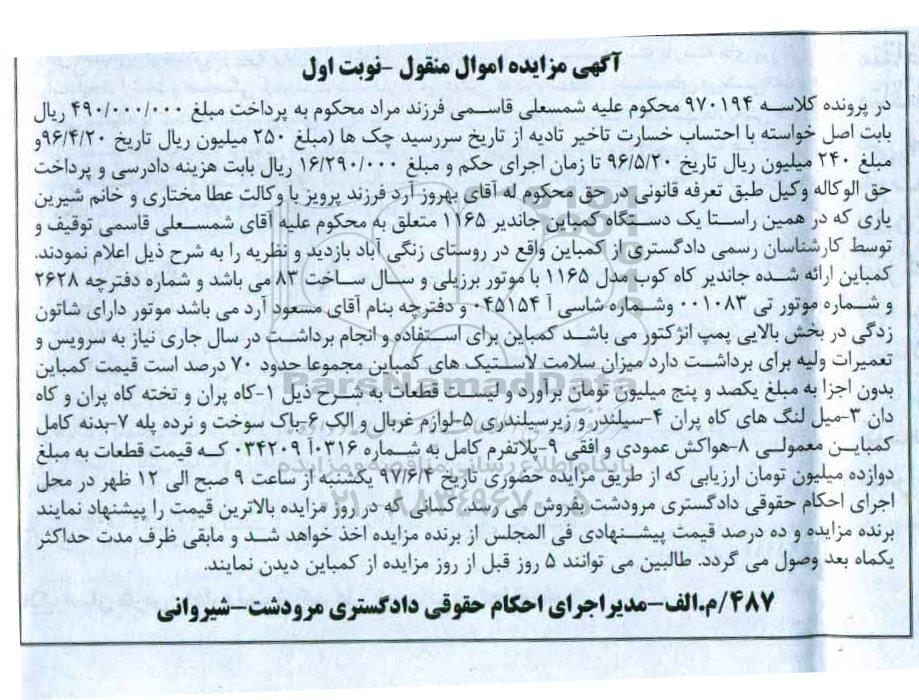 آگهی مزایده اموال منقول -نوبت اول
در پرونده کلاسه ۹۷۰۱۹۴ محکوم علیه شمسعلی قاسمی فرزند مراد محکوم به پرداخت مبلغ ۴۹۰/۰۰۰/۰۰۰ ریال
بابت اصل خواسته با احتساب خسارت تاخیر تادیه از تاریخ سررسید چک ها (مبلغ ۲۵۰ میلیون ریال تاریخ ۹۶/۴/۲۰و
مبلغ ۲۴۰ میلیون ریال تاریخ ۹۶/۵/۲۰ تا زمان اجرای حکم و مبلغ ۱۶/۲۹۰/۰۰۰ ریال بابت هزینه دادرسی و پرداخت
حق الوکاله وکیل طبق تعرفه قانونی در حق محکوم له آقای بهروز آرد فرزند پرویز با وکالت عطا مختاری و خانم شیرین
یاری که در همین راستا یک دستگاه کمباین جاندیر ۱۱۶۵ متعلق به محکوم علیه آقای شمسعلی قاسمی توقیف و
توسط کارشناسان رسمی دادگستری از کمباین واقع در روستای زنگی آباد بازدید و نظریه را به شرح ذیل اعلام نمودند.
کمباین ارائه شده جاندیر کاه کوب مدل ۱۱۶۵ با موتور برزیلی و سال ساخت ۸۳ می باشد و شماره دفترچه ۲۶۲۸
و شماره موتور تی ۰۰۱۰۸۳ وشماره شاسی آ ۰۴۵۱۵۴ و دفترچه بنام آقای مسعود آرد می باشد موتور دارای شاتون
زدگی در بخش بالایی پمپ انژکتور می باشد کمباین برای استفاده و انجام برداشت در سال جاری نیاز به سرویس و
تعمیرات ولیه برای برداشت دارد میزان سلامت لاستیک های کمباین مجموعا حدود ۷۰ درصد است قیمت کمباین
بدون اجزا به مبلغ یکصد و پنج میلیون تومان براورد و لیست قطعات به شرح ذیل ۱-کاه پران و تخته کاه پران و کاه
دان ۳-میل لنگ های کاه پران ۴-سیلندر و زیرسیلندری ۵-لوازم غربال و الک ۶-باک سوخت و نرده پله ۷-بدنه کامل
کمباین معمولی ۸-هواکش عمودی و افقی ۹-پلاتفرم کامل به شماره ۰۳۱۶آ ۰۳۴۲۰۹ که قیمت قطعات به مبلغ
دوازده میلیون تومان ارزیابی که از طریق مزایده حضوری تاریخ ۹۷/۶/۴ یکشنبه از ساعت ۹ صبح الی ۱۲ ظهر در محل
اجرای احکام حقوقی دادگستری مرودشت بفروش می رسد. کسانی که در روز مزایده بالاترین قیمت را پیشنهاد نمایند
برنده مزایده و ده درصد قیمت پیشنهادی فی المجلس از برنده مزایده اخذ خواهد شد و مابقی ظرف مدت حداکثر
یکماه بعد وصول می گردد. طالبین می توانند ۵ روز قبل از روز مزایده از کمباین دیدن نمایند.
۴۸۷/م.الف-مدیر اجرای احکام حقوقی دادگستری مرودشت-شیروانی
ParsNamadData
پایگاه اطلاع رسانی مناقصه و مزایده
۰۲۱-۸۸۳۴۹۶۷۰-۵